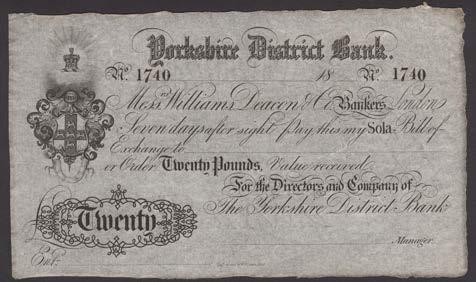 Yorkshire District Bank.
No. 1740 18 No. 1740
Messrs. Williams Deacon & Co. Bankers London
Seven days after sight Pay this my Sola Bill of
Exchange to
or Order Twenty Pounds, Value received
For the Directors and Company of
The Yorkshire District Bank
£ Twenty
Manager.
Ent.